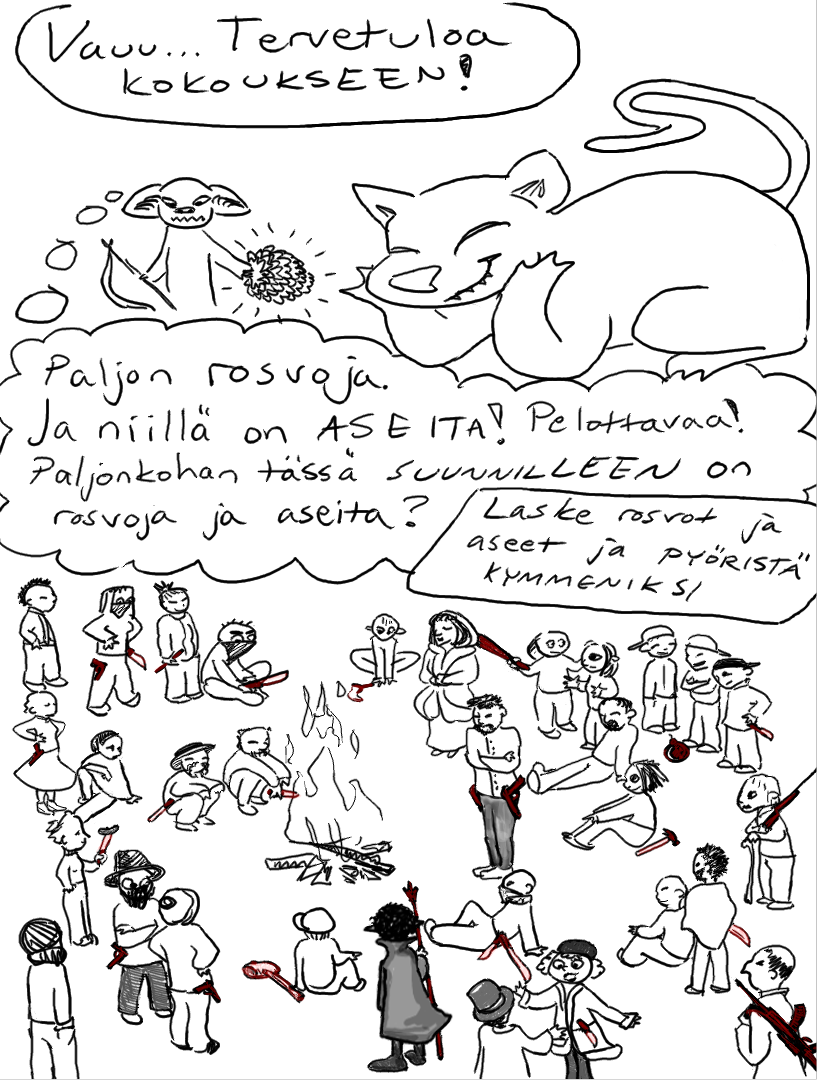 Vauu... Tervetuloa
KOKOUKSEEN!
Paljon rosvoja.
Ja niillä on ASEITA! Pelottavaa!
Paljonkohan tässä SUUNNILLEEN on
rosvoja ja aseita?
Laske rosvot ja
aseet ja PYÖRISTÄ
KYMMENIKSI